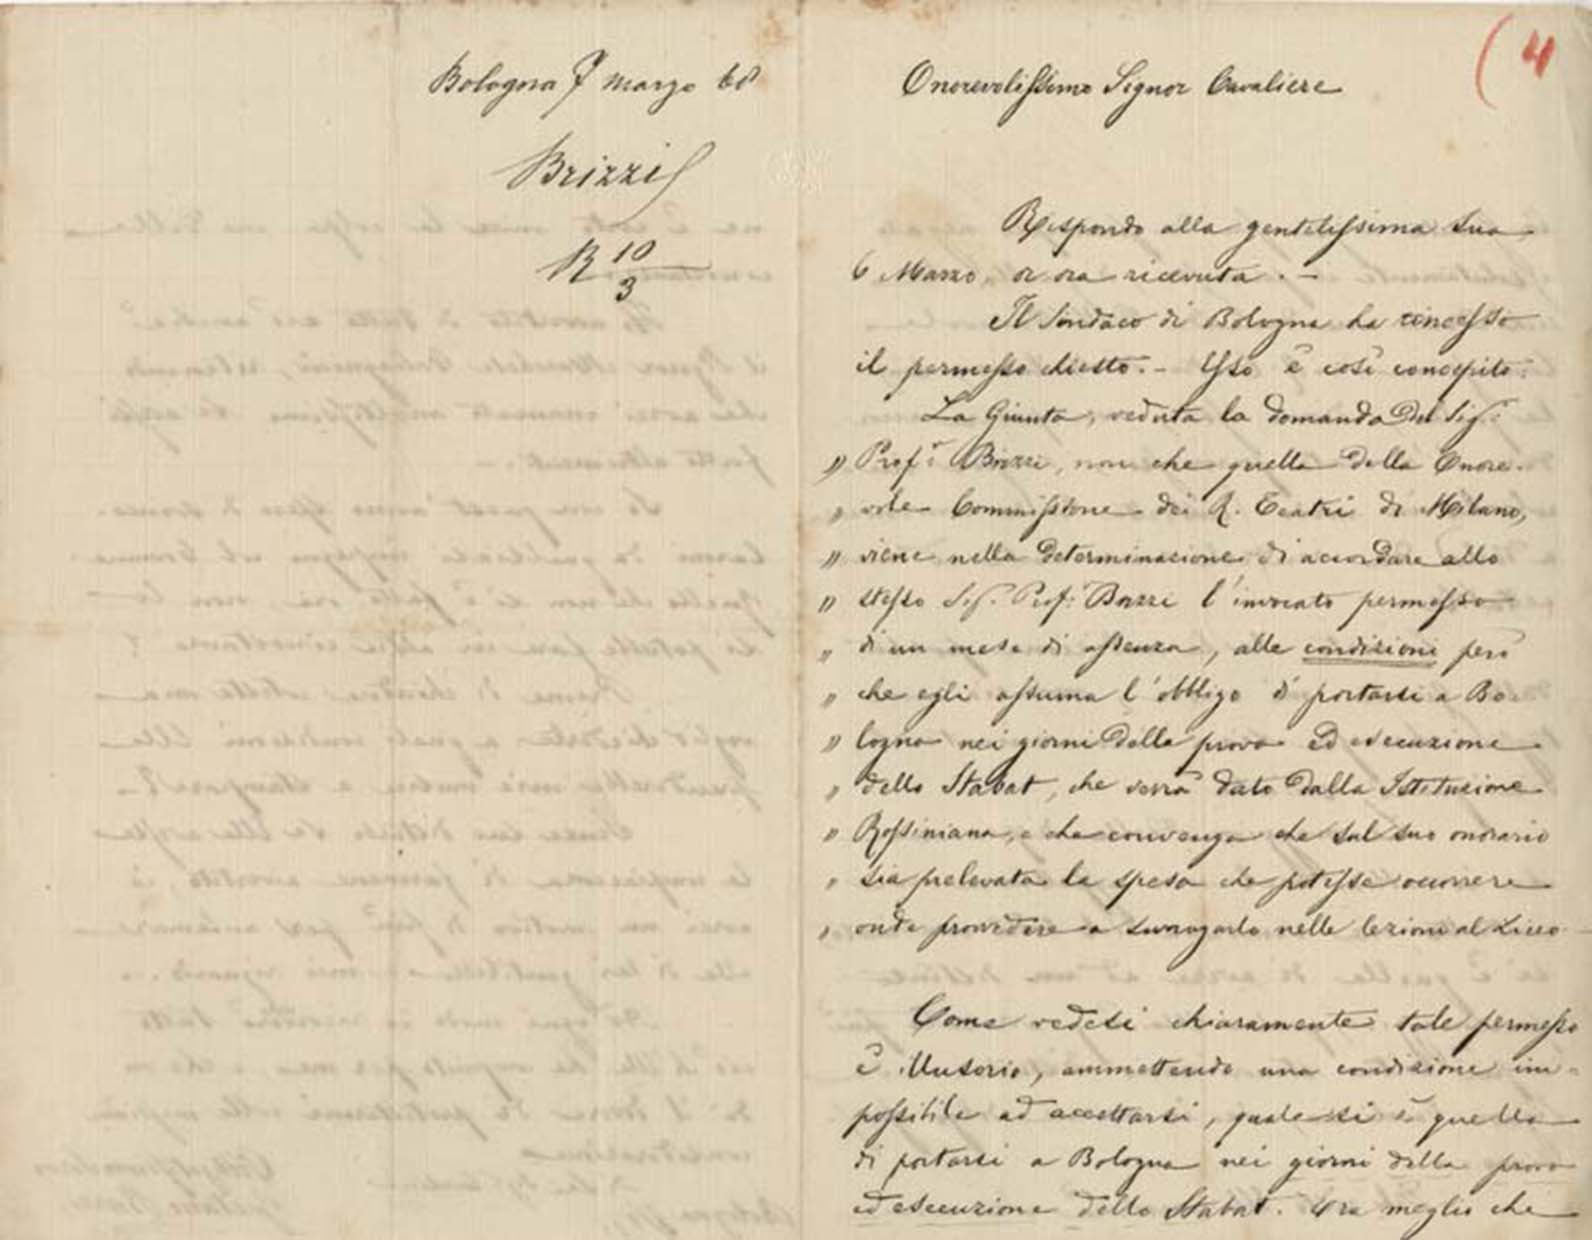 Bologna 7 marzo 68
Brizzi
R 10
3
(4
Onorevolissimo Signor Cavaliere
Rispondo alla gentilissima sua
6 Marzo or ora ricevuta. –
Il Sindaco di Bologna ha concesso
il permesso chiesto. – Esso è così concepito:
La Giunta, veduta la domanda del Sigr
" Profr Brizzi, non che quella della Onore-
" vole Commissione dei R. Teatri di Milano,
" viene nella determinazione di accordare allo
" stesso Sigr Profr Brizzi l'invocato permesso
" di un mese di assenza, alle condizioni però
" che egli assuma l'obbligo di portarsi a Bo-
" logna nei giorni della prova ed esecuzione
" dello Stabat, che verrà dato dalla Istituzione
" Rossiniana, e che convenga che sul suo onorario
" sia prelevata la spesa che potesse occorrere
" onde provvedere a surrogarlo nelle lezioni al Liceo –
Come vedesi chiaramente tale permesso
è illusorio, ammettendo una condizione im-
possibile ad accettarsi, quale si è quella
di portarsi a Bologna nei giorni della prova
ed esecuzione dello Stabat. Era meglio che